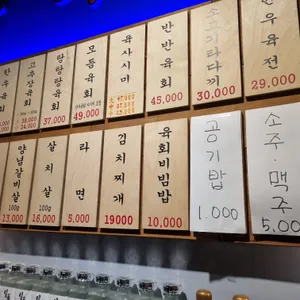 한우육회
고추장육회
38,000
24,000
탕탕탕육회
37,000
모듬육회
49,000
육사시미
大 47,000
中 43,000
반반육회
45,000
소고기타다끼
30,000
한우육전
29,000
양념갈비살
100g
13,000
살치살
100g
16,000
라면
5,000
김치찌개
19000
육회비빔밥
10,000
공기밥
1.000
소주·맥주
5,00